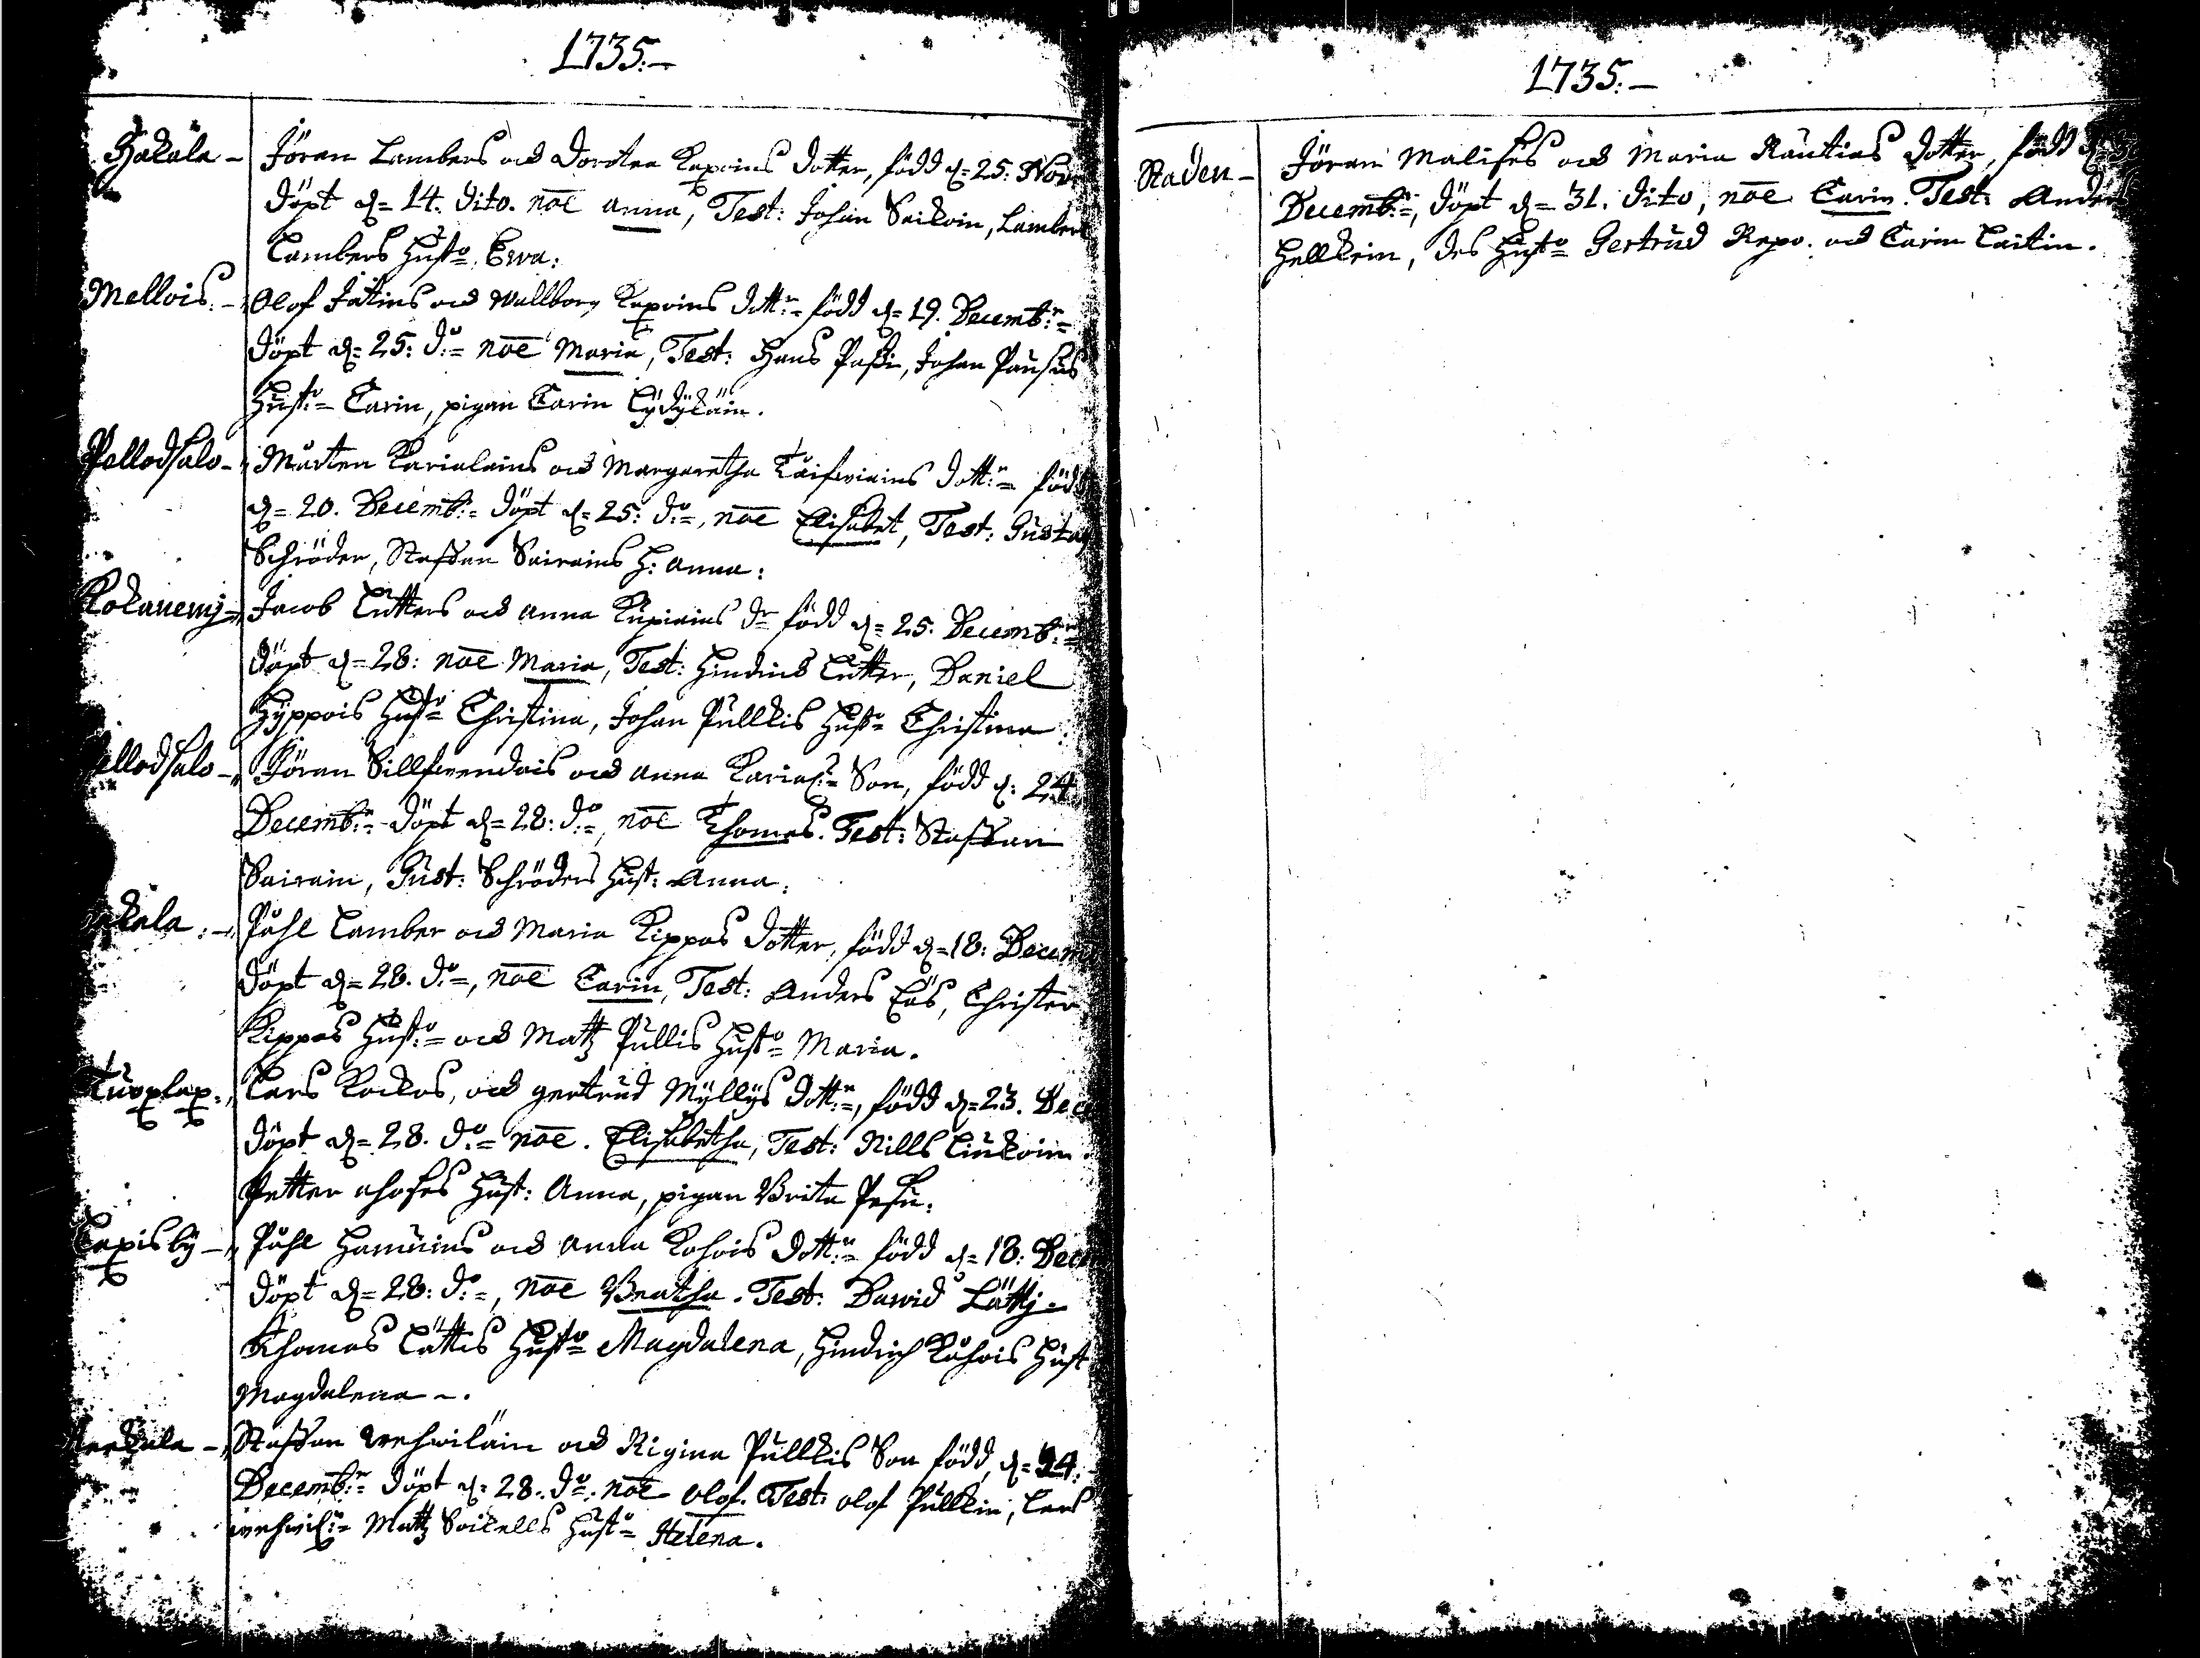 1735:-
Hakala - Jöran Lambers och Dorotea Kaxoins dotter, född d= 25: Nov
döpt d= 14. dito. noe anna, Test: Johan Saickoin, Lamber
Lambers Hust:o Ewa:
Mellois:- Olof Jätins och Wallborg Kaxoins dott:r född d= 19. Decemb:r
döpt d= 25: d:o noe Maria, Test: Hans Paßi, Johan Pausus
Hust:o Carin, pigan Carin Lÿdÿkäin.
Pellodsalo - Mårten Karialains och Margaretha Tåifwiains dott:r född
d= 20. Decemb:r döpt d= 25: d:o, noe Elisabet, Test: Gustav
Schröder, Staffan Sairains H: anna:
Kokanemj - Jacob Lutters och anna Kupiains dr född d= 25. Decemb:r
döpt d= 28: noe Maria, Test: Hindrich Lutter, Daniel
Hÿppois Hust:o Christina, Johan Pullkis Hust:o Christina
ellodsalo - Jöran Sillfwendois och anna Kariax:s Son, född d: 24
Decemb:r döpt d= 28: d:o, noe Thomas. Test: Staffan
Sairain, Gust: Schröders Hust: Anna:
kala:- Påhl Lamber och Maria Kippas dotter, född d= 18: Decemb
döpt d= 28. d:o, noe Carin, Test: Anders Eås, Christer
Kippas Hust:o och Matz Pullis Hust:o Maria.
Tuoxlax:- Lars Kockos, och gertrud Mÿllÿs dott:r, född d= 23. Dec
döpt d= 28. d:o noe. Elisabetha, Test: Nills Liuckoin.
Petter ahofes Hust: Anna, pigan Brita Pesu:
Taxisbÿ - Påhl Hamuins och anna Kohois dott:r född d= 18: Dec
döpt d= 28: d:o, noe Beatha. Test: Dawid Lättj-
Thomas Lättis Hust:o Magdalena, Hindrich Kåhois Hust
Magdalena -.
Kerkala - Staffan wehwiläin och Rigina Pullkis Son född, d= 24:
Decemb:r döpt d: 28. d:o. noe Olof. Test: olof Pullkin, Lars
wehwil:s Matz Saikells Hust:o Helena.
1735:-
Staden - Jöran Malises och Maria Rautias dotter, född
Decemb:r, döpt d= 31. dito, noe Carin. Test: Anders
Hellkein, des Hust:o Gertrud Repo. och Carin Laitin.